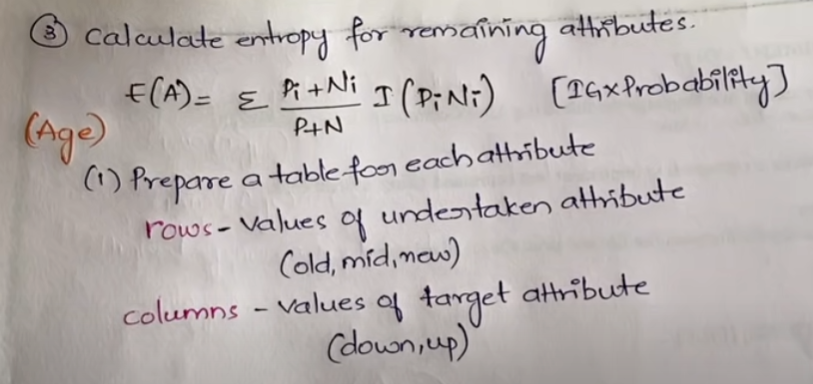 ③ Calculate entropy for remaining attributes.
E(A) = Σ Pi+Ni / P+N I(PiNi) [IG×Probability]
(Age)
(1) Prepare a table for each attribute
rows - Values of undertaken attribute
(old, mid, new)
columns - values of target attribute
(down, up)